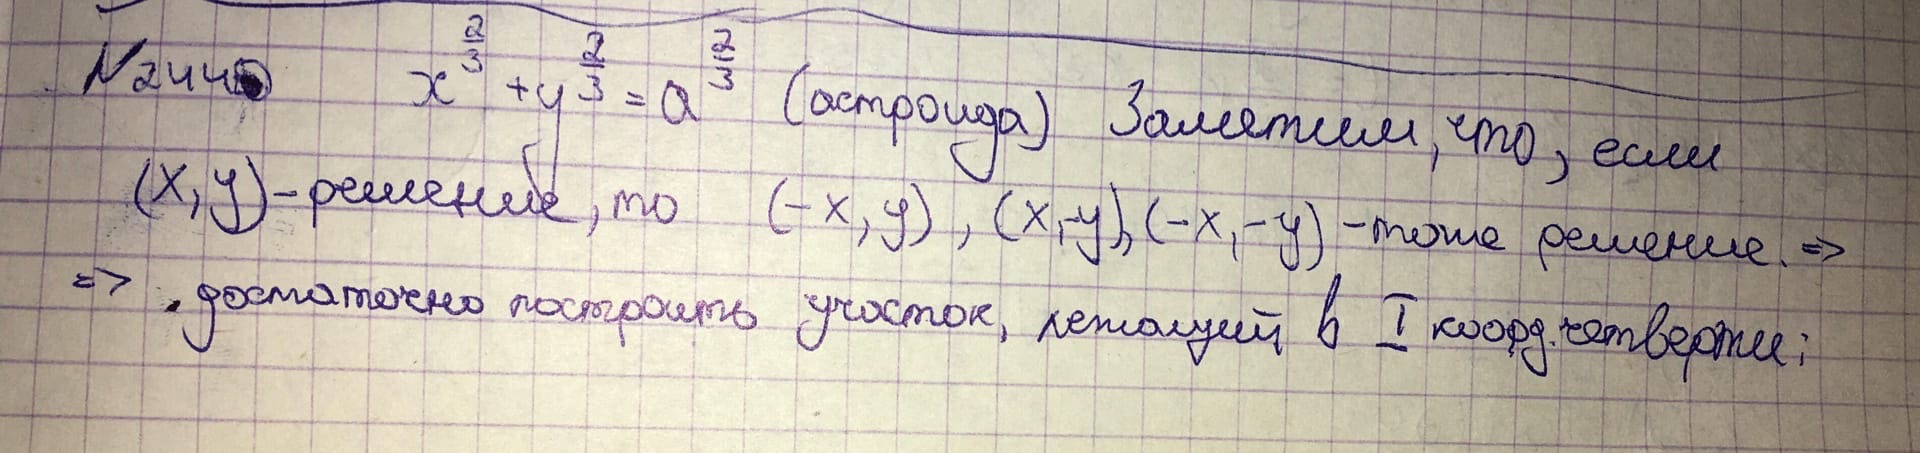 N2440 x^{2/3} + y^{2/3} = a^{2/3} (астроида) Заметим, что, если
(x, y) - решение, то (-x, y), (x, -y), (-x, -y) - тоже решение. =>
=> достаточно построить участок, лежащий в I коорд. четверти: